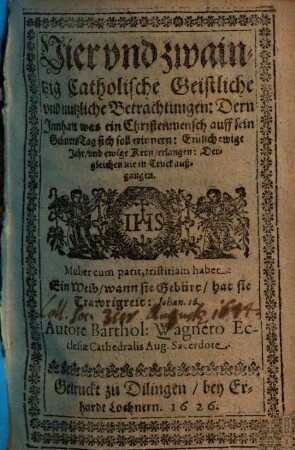 Vier vnd zwain-
tzig Catholische Geistliche
vnd nutzliche Betrachtungen: Dern
Innhalt was ein Christenmensch auff sein
Geburts Tag sich soll erinnern: Endlich ewige
Jahr/ vnd ewige Kron/ erlangen: Der-
gleichen nie in Truck auß-
gangen.
IHS
Mulier cum parit, tristitiam habet.
Ein Weib/ wann sie Gebürt/ hat sie
Trawrigkeit: Johan. 16.
Coll. Soc. Jesu August. 1644.
Autore Barthol: Wagnero Ec-
clesiæ Cathedralis Aug. Sacerdote.
Getruckt zu Dilingen/ bey Er-
hardt Lochnern. 1626.